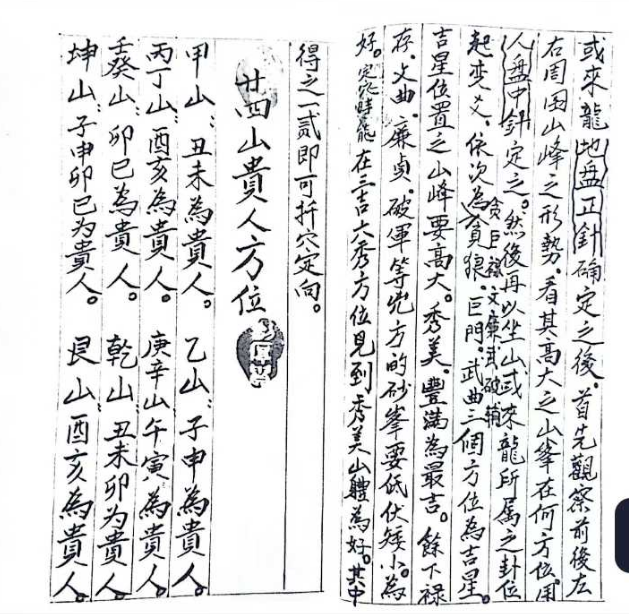 或來龍地盘正針确定之後。首先觀察前後左
右周围山峰之形勢、看其高大之山峯在何方位、用
人盘中針定之。然後再以坐山或來龍所属之卦位
起変爻、依次為貪狼、巨門、武曲三個方位為吉星。
貪巨祿文廉武破輔
吉星位置之山峰要高大。秀美。豐滿為最吉。餘下禄
存、文曲、廉貞、破軍等兇方的砂峯要低伏矮小。為
好。定穴時能在三吉六秀方位見到秀美山體為好。其中
得之一貳即可扦穴定向。
廿四山貴人方位
甲山：丑未為貴人。 乙山：子申為貴人。
丙丁山：酉亥為貴人。 庚辛山午寅為貴人。
壬癸山：卯巳為貴人。 乾山：丑未卯为貴人。
坤山：子申卯巳为貴人。 艮山：酉亥為貴人。